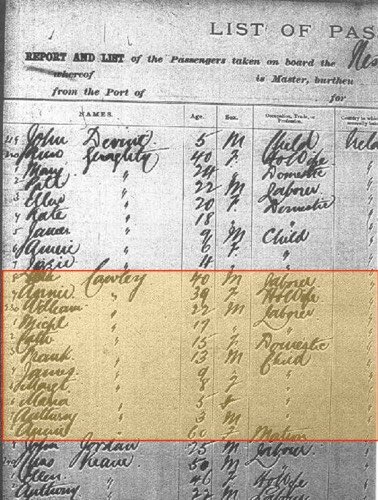 LIST OF PAS
REPORT AND LIST of the Passengers taken on board the Nes
whereof is Master, burthen
from the Port of for
NAMES. Age. Sex. Occupation, Trade, or Profession. Country to which
John Devine 5 M Child Irela
Geraghty 40 F. Ho Wife
Mary " 24 " Domestic
Patt " 22 M Laborer
Ellen " 20 F. Domestic
Kate " 18 "
James " 9 M Child
Annie " 6 F.
Josie " 4 "
Cawley 40 M Laborer
Annie " 39 F. Ho Wife
William " 22 M Laborer
Michl " 17 "
" 15 F. Domestic
Frank " 13 M Child
James " 9 "
Margt " 8 F
Maria " 5 "
Anthony " 3 M
Annie " 60 F Matron
John Jordan 25 M Laborer
Keane 50 M "
" 46 " Ho Wife
Anthony " 22 M Laborer